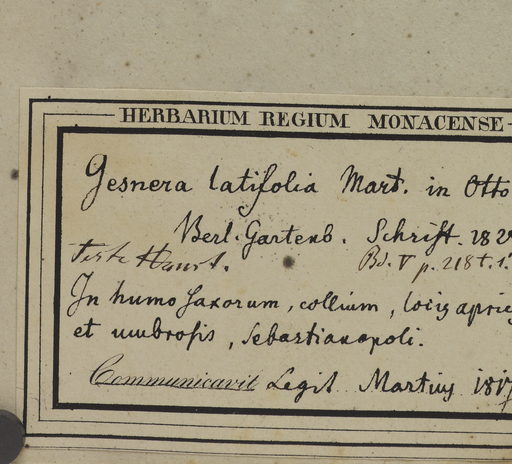 HERBARIUM REGIUM MONACENSE
Gesnera latifolia Mart. in Otto
Berl. Gartenb. Schrift. 182
teste Hanst. Bd. V p. 218 t. 1.
In humo saxorum, collium, locis apricis
et umbrosis, Sebastianopoli.
Communicavit Legit Martius 1817